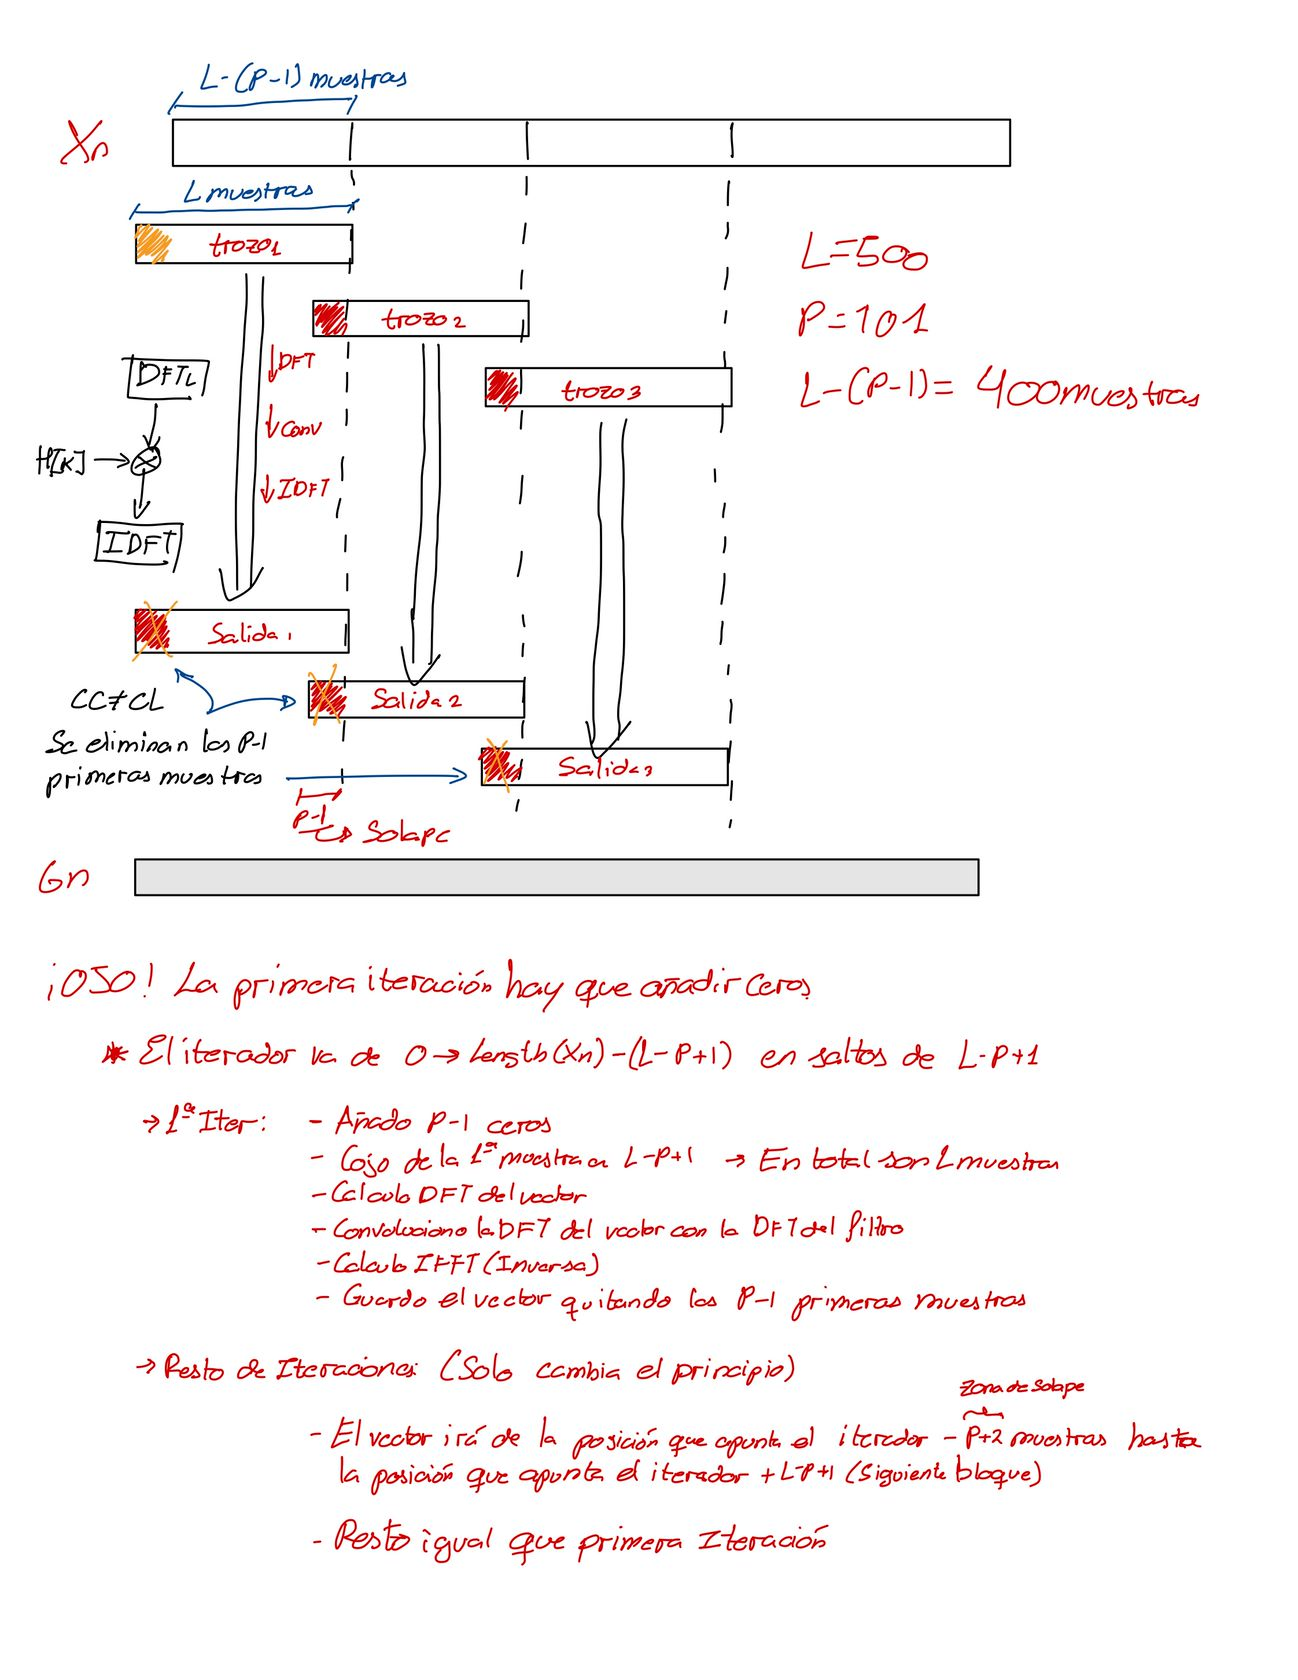 L-(P-1) muestras
Xn
L muestras
trozo1
L=500
trozo2
P=101
DFT
DFTL
trozo3
L-(P-1)= 400 muestras
Conv
H[K]
IDFT
IDFT
Salida1
CC≠CL
Salida2
Se eliminan los P-1
primeras muestras
Salida3
P-1
→ Solape
Gn
¡OJO! La primera iteración hay que añadir ceros
* El iterador va de 0→Length(Xn)-(L-P+1) en saltos de L-P+1
→1ª Iter:
- Añado P-1 ceros
- Cojo de la 1ª muestra a L-P+1 → En total son L muestras
- Calculo DFT del vector
- Convoluciono la DFT del vector con la DFT del filtro
- Calculo IFFT (Inversa)
- Guardo el vector quitando las P-1 primeras muestras
→ Resto de Iteraciones: (Solo cambia el principio)
Zona de Solape
- El vector irá de la posición que apunta el iterador -P+2 muestras hasta
la posición que apunta el iterador +L-P+1 (Siguiente bloque)
- Resto igual que primera Iteración